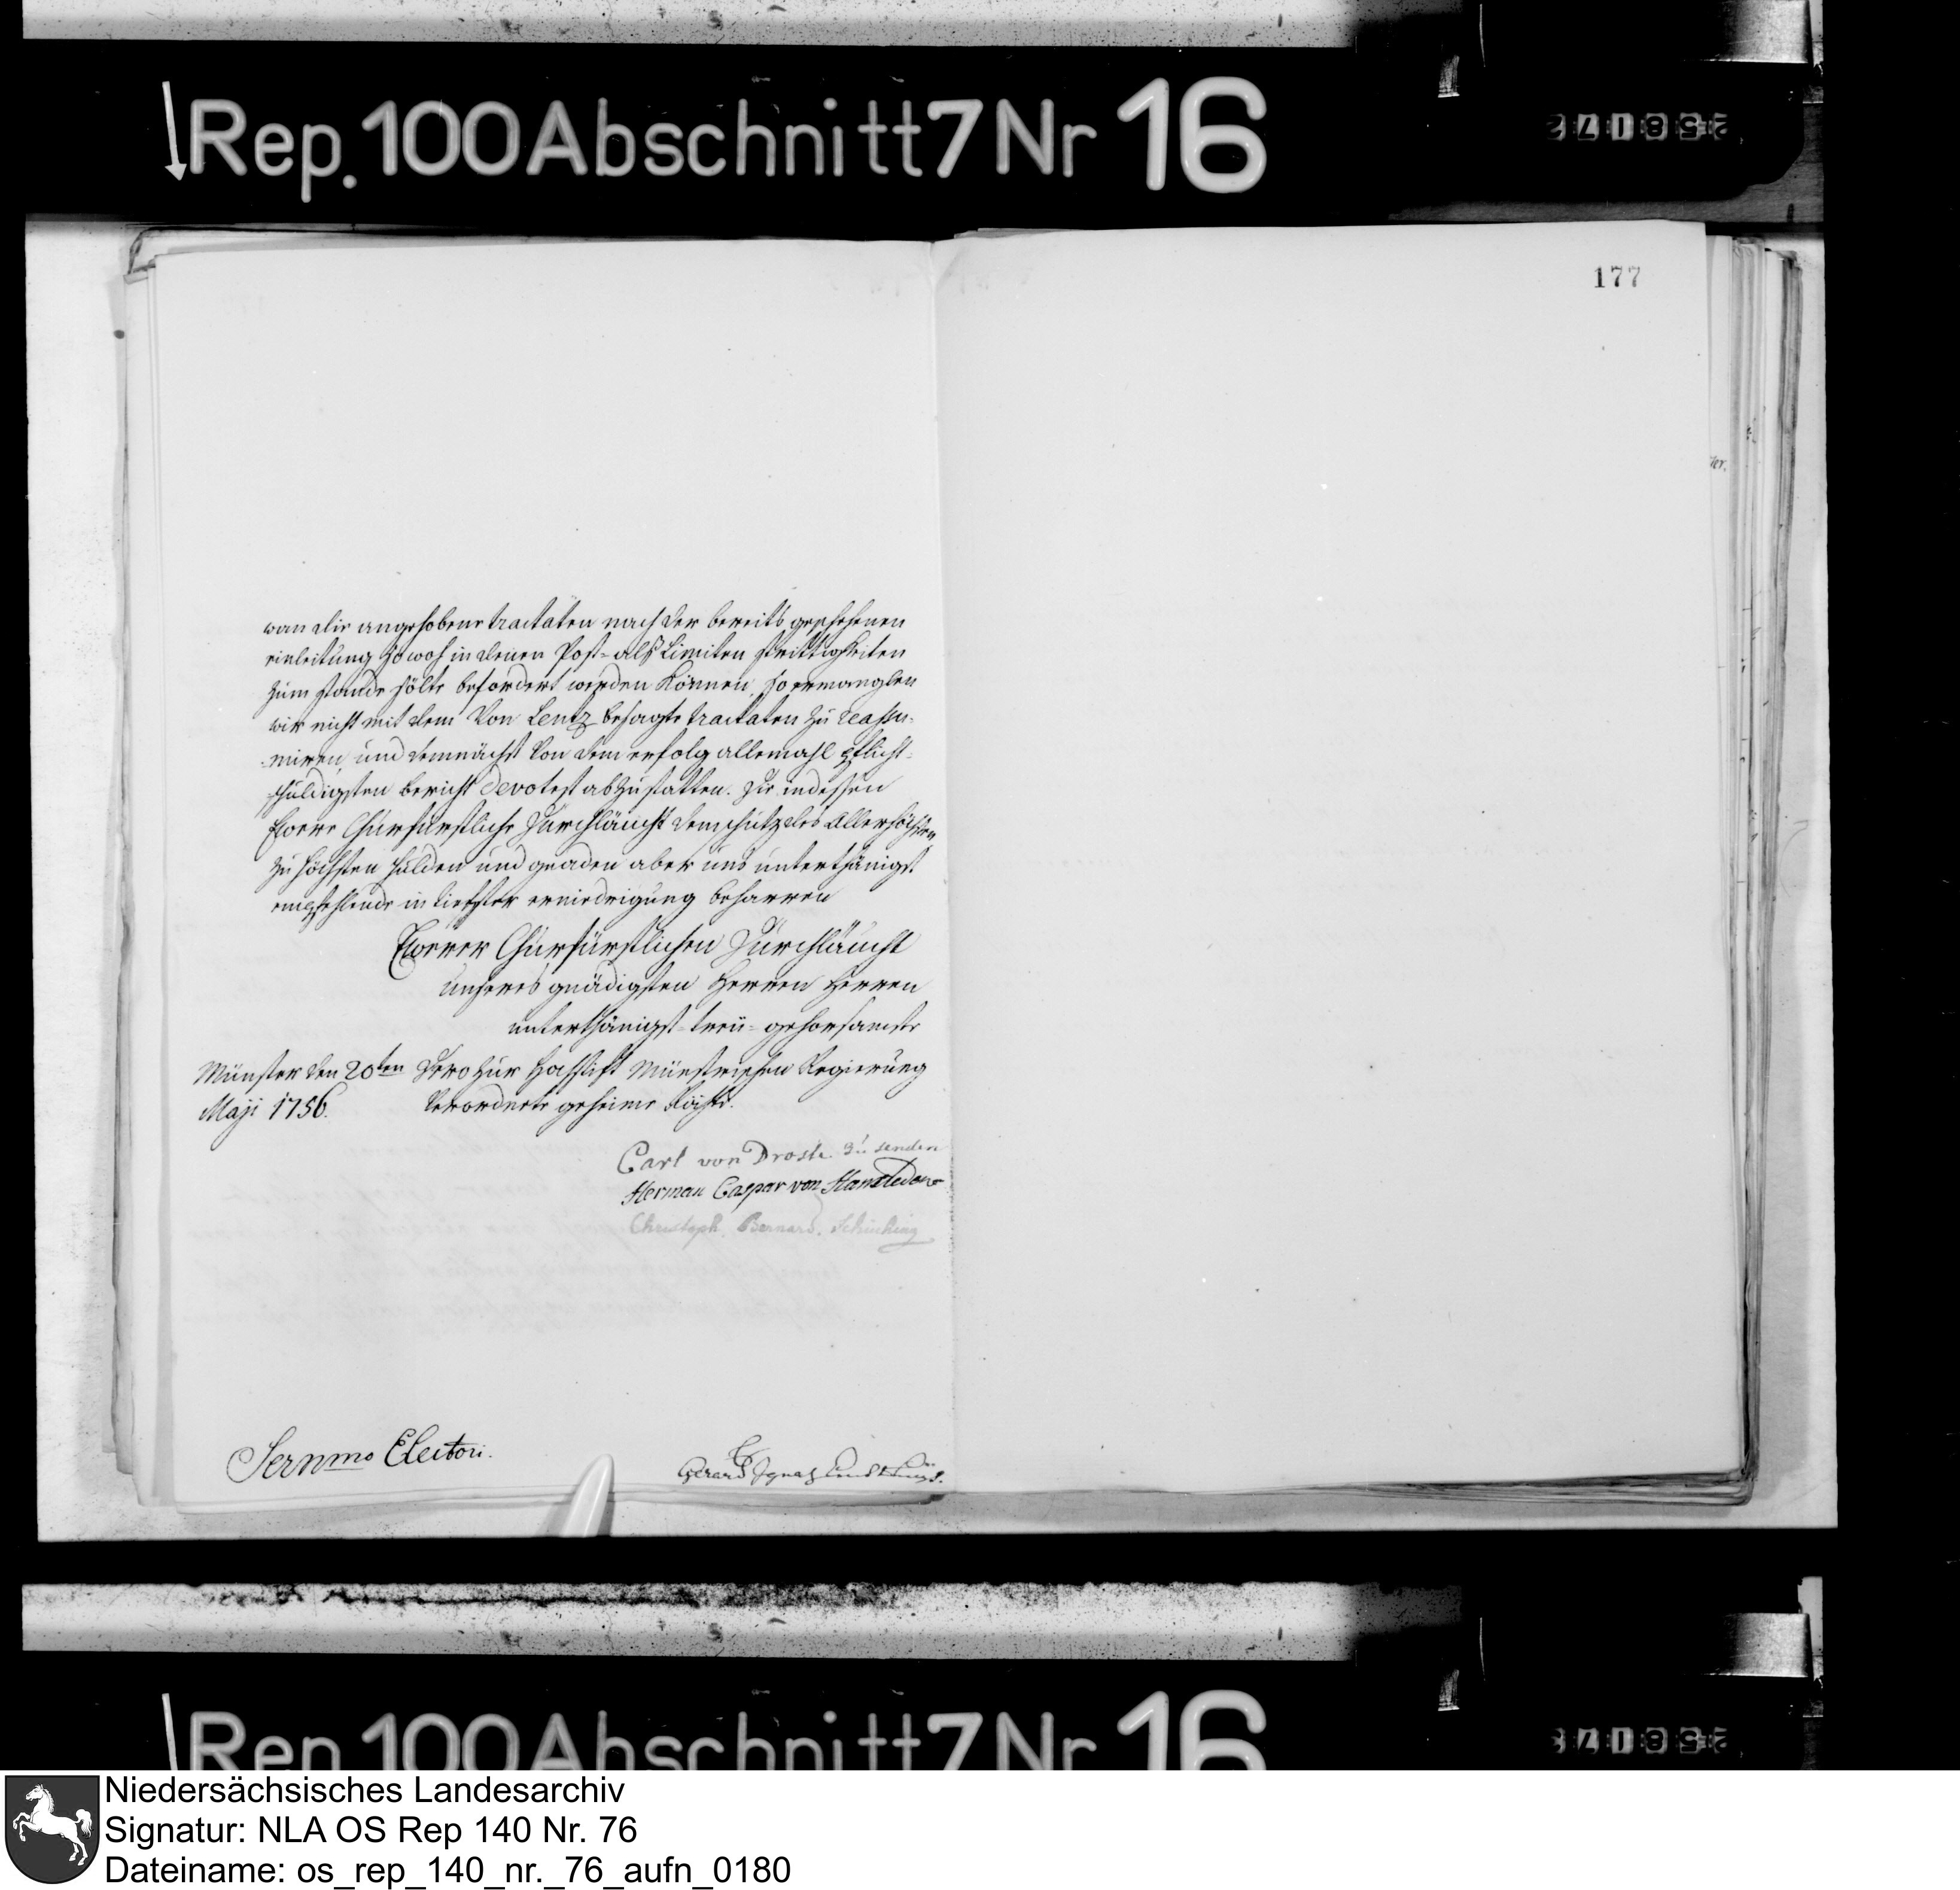 Rep. 100 Abschnitt 7 Nr 16
177
wan die angehobene tractaten nach der bereits geschehenen
einleitung so wohl in denen Post- als Limiten strittigkeiten
zum stande sölte befordert werden können, so ermanglen
wir nicht mit dem von Lentz besagte tractaten zu reassu-
miren, und demnächst von dem erfolg allemahl pflicht-
schuldigsten bericht devotest abzustatten. die indessen
Ewere Churfürstliche Durchläucht dem schutz des Allerhöchsten
zu höchsten hulden und gnaden aber uns unterthänigst
empfehlende in tiefster erniedrigung beharren
Ewerer Churfürstlichen Durchläucht
unseres gnädigsten Herren Herren
unterthänigst- treü- gehorsamste
Münster den 20ten Dero zur Hochstift Münstrischen Regierung
Maji 1756. Verordnete geheime Räthe.
Carl von Droste zu senden
Herman Caspar von
Christoph Bernard Schücking
Sernmo Electori.
Gerard Ignaz
Rep. 100 Abschnitt 7 Nr 16
Niedersächsisches Landesarchiv
Signatur: NLA OS Rep 140 Nr. 76
Dateiname: os_rep_140_nr._76_aufn_0180